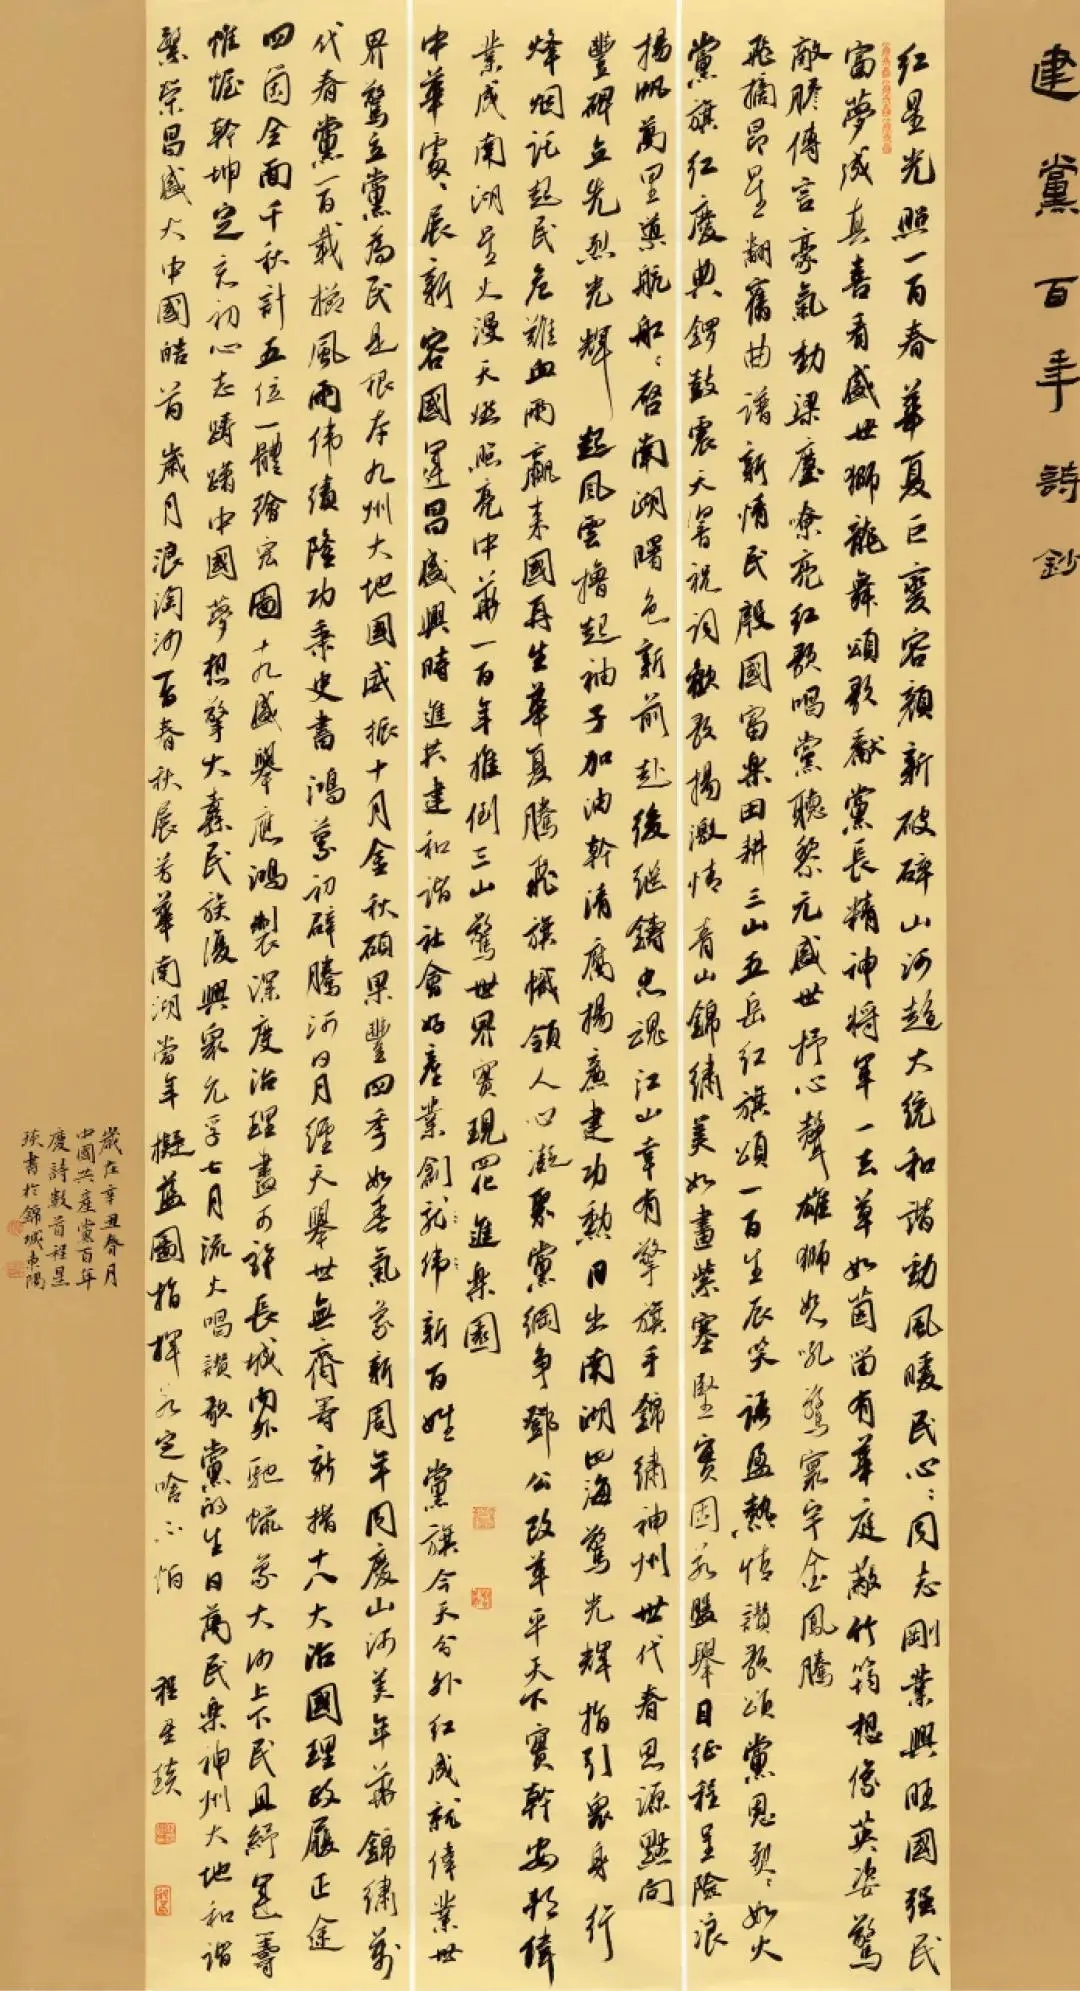 建黨百年詩鈔
红星光照一百春華夏巨變容顏新破碎山河趨大统和諧動風暖民心:同志剛業興旺國强民
富夢成真喜看盛世獅龍舞頌歌獻黨長精神将軍一去草如茵留有華庭蔽竹筠想像英姿驚
敵膽傳言豪氣動梁塵嘹亮红歌唱黨聽黎元盛世抒心聲雄獅怒吼驚寰宇金鳳騰
飛摘昂星翻舊曲譜新情民殷國富樂田耕三山五岳红旗頌一百生辰笑語盈熱情讚歌頌黨恩烈:如火
黨旗红慶典鑼鼓震天署祝詞歡歌揚激情青山錦繡美如畫紫塞堅實固若盤舉目征程呈險浪
揚帆萬里導航船:啓南湖曙色新前赴後继鑄忠魂江山幸有擎旗手錦繡神州世代春思源點向
豐碑立先烈光輝起風雲擼起袖子加油幹清腐揚廉建功勲日出南湖四海驚光輝指引衆身行
烽烟託起民危難血雨赢来國再生華夏騰飛旗幟領人心凝聚黨綱争鄧公改革平天下實幹安邦偉
業成南湖星火漫天燃照亮中華一百年推倒三山驚世界實現四化進樂園
中華處:展新容國運昌盛興時進共建和諧社會好產業創就:偉:新百姓黨旗今天分外红成就偉業世
界驚立黨為民是根本九州大地國威振十月金秋碩果豐四季如春氣象新周年同慶山河美年華錦繡萬
代春黨一百載櫛風雨伟績隆功秉史書鴻蒙初辟騰河日月經天舉世無齊壽新措十八大治國理政履正途
四箇全面千秋計五位一體繪宏圖十九盛舉應鴻製深度治理畫可許長城内外馳懺象大河上下民且紓運籌
帷幄幹坤定立初心志踌躇中國夢想擎大纛民族復興衆允孚七月流火唱讚歌黨的生日萬民樂神州大地和諧
繁荣昌盛大中國皓首歲月浪淘沙百春秋展芳華南湖當年擬藍圖指揮若定啥不怕 程星琰
歲在辛丑春月
中國共產黨百年
慶詩數首程星
琰書於錦城東隅